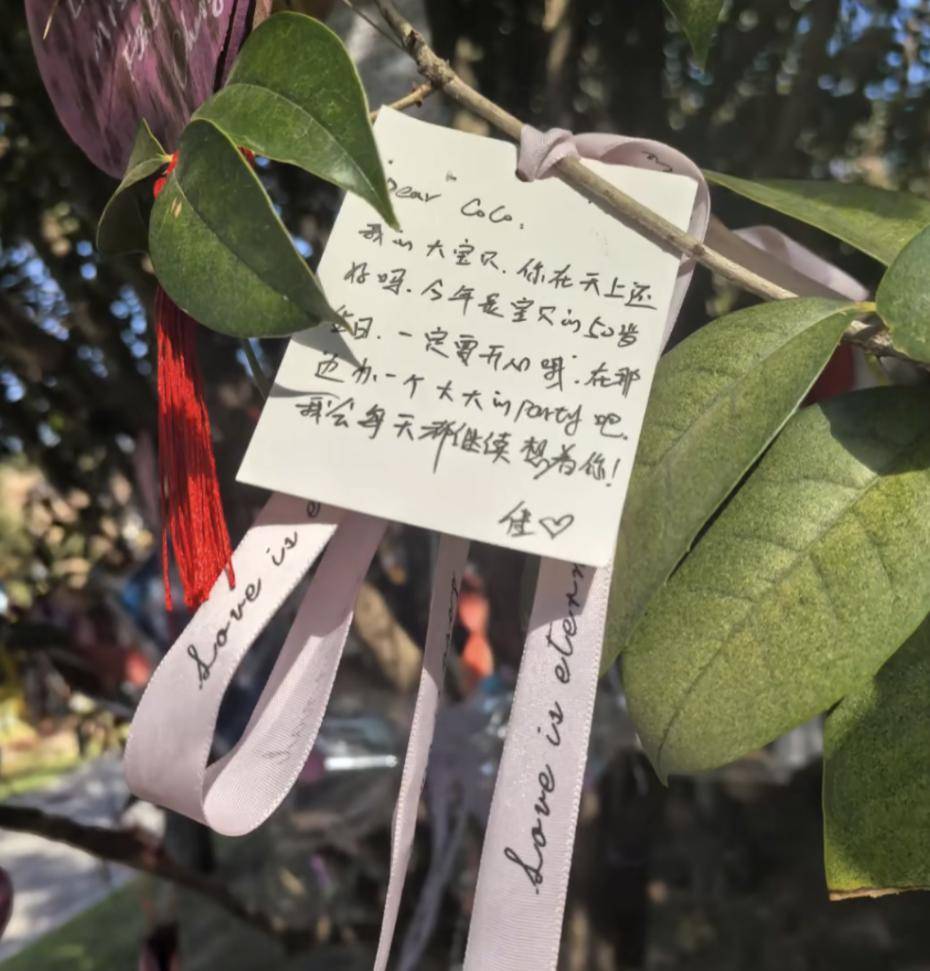 Dear CoCo.
我的大宝贝.你在天上还
好吗.今年是宝贝的50岁
生日.一定要开心哦.在那
边办一个大大的party吧.
我会每天都继续想着你!
佳♡
Love is e
Love is etern